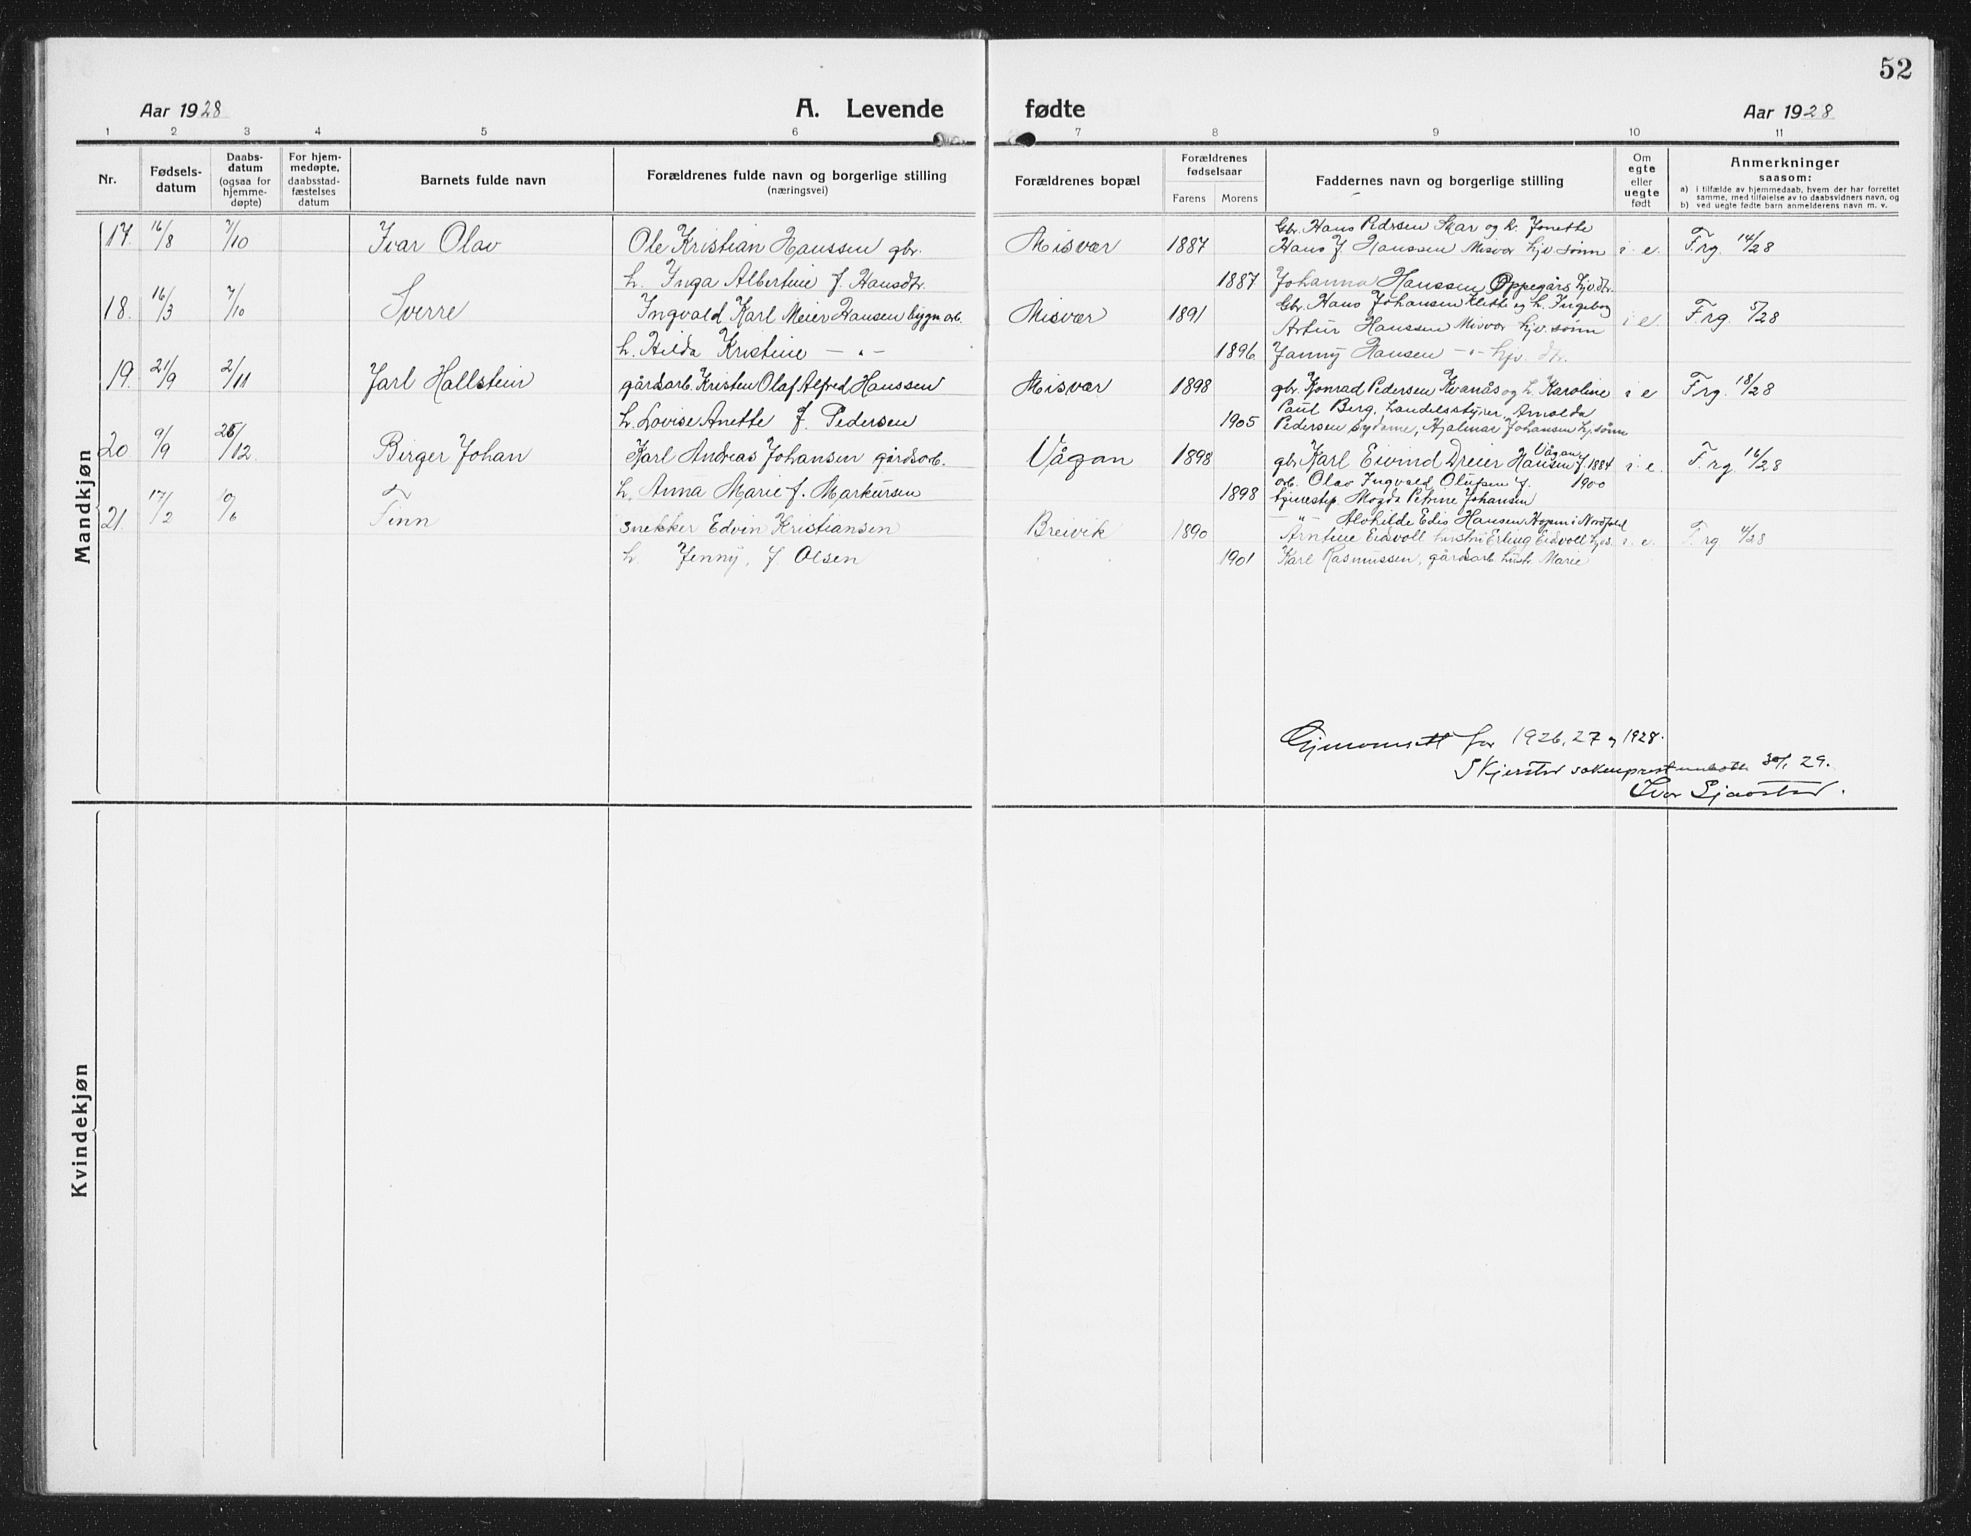 52
Aar 1928 A. Levende fødte Aar 1928
1 2 3 4 5 6 7 8 9 10 11
Nr.
Fødsels-
datum
Daabs-
datum
(ogsaa for
hjemme-
døpte)
For hjem-
medøpte,
daabsstad-
fæstelses
datum
Barnets fulde navn
Forældrenes fulde navn og borgerlige stilling
(næringsvei)
Forældrenes bopæl
Forældrenes
fødselsaar
Farens Morens
Faddernes navn og borgerlige stilling
Om
egte
eller
uegte
født
Anmerkninger
saasom:
a) i tilfælde av hjemmedaab, hvem der har forrettet
samme, med tilføielse av to daabsvidners navn, og
b) ved uegte fødte barn anmelderens navn m. v.
Mandkjøn
17. 16/8 7/10 Ivar Olav
Ole Kristian Hanssen gbr.
h. Inga Albertine f. Hansdtr.
Misvær 1887
1887
Gbr. Hans Pedersen Skar og h. Jonette
Hans J Hanssen Misvær hjv. sønn
Johanna Hanssen Oppegårs hjv. dtr.
i. e. F.rg. 14/28
18. 16/3 7/10 Sverre
Ingvald Karl Meier Hansen bygn. arb.
h. Hilda Kristine — " —
Misvær 1891
1896
Gbr. Hans Johansen Klette og h. Ingeborg
Artur Hanssen Misvær hjv. sønn
Janny Hansen — " — hjv. dtr.
i e. F.rg. 5/28
19. 21/9 2/11 Jarl Hallstein
gårdsarb. Kristen Olaf Alfred Hanssen
h. Lovise Anette f. Pedersen
Misvær 1898
1905
gbr. Konrad Pedersen Kvanås og h. Karoline
Paul Berg, handelsstyrer, Arnolda
Pedersen sydame, Hjalmar Johansen hj. sønn
i e F.rg. 18/28
20. 9/9 26/12. Birger Johan
Karl Andreas Johansen gårdsarb.
h. Anna Marie f. Markussen
Vågan 1898
1898
gbr. Karl Eivind Dreier Hansen Vågan f. 1884
arb. Olav Ingvald Olufsen f. 1900
tjenestep. Magda Petrine Johansen
— " — Alvhilde Edis Hansen Hopen i Nordfold
i. e. F.rg. 16/28
21. 17/2 10/6 Finn
snekker Edvin Kristiansen
h. Jenny, f Olsen
Breivik 1890
1901
Arntine Eidsvoll hustru Erling Eidsvoll hjs.
Karl Rasmussen, gårdsarb. hustr. Marie
i. e. F.rg 4/28
Gjennomsett for 1926, 27 og 1928.
Skjerstad sokneprestembette 30/1 29.
Ivar Sjaastad.
Kvindekjøn